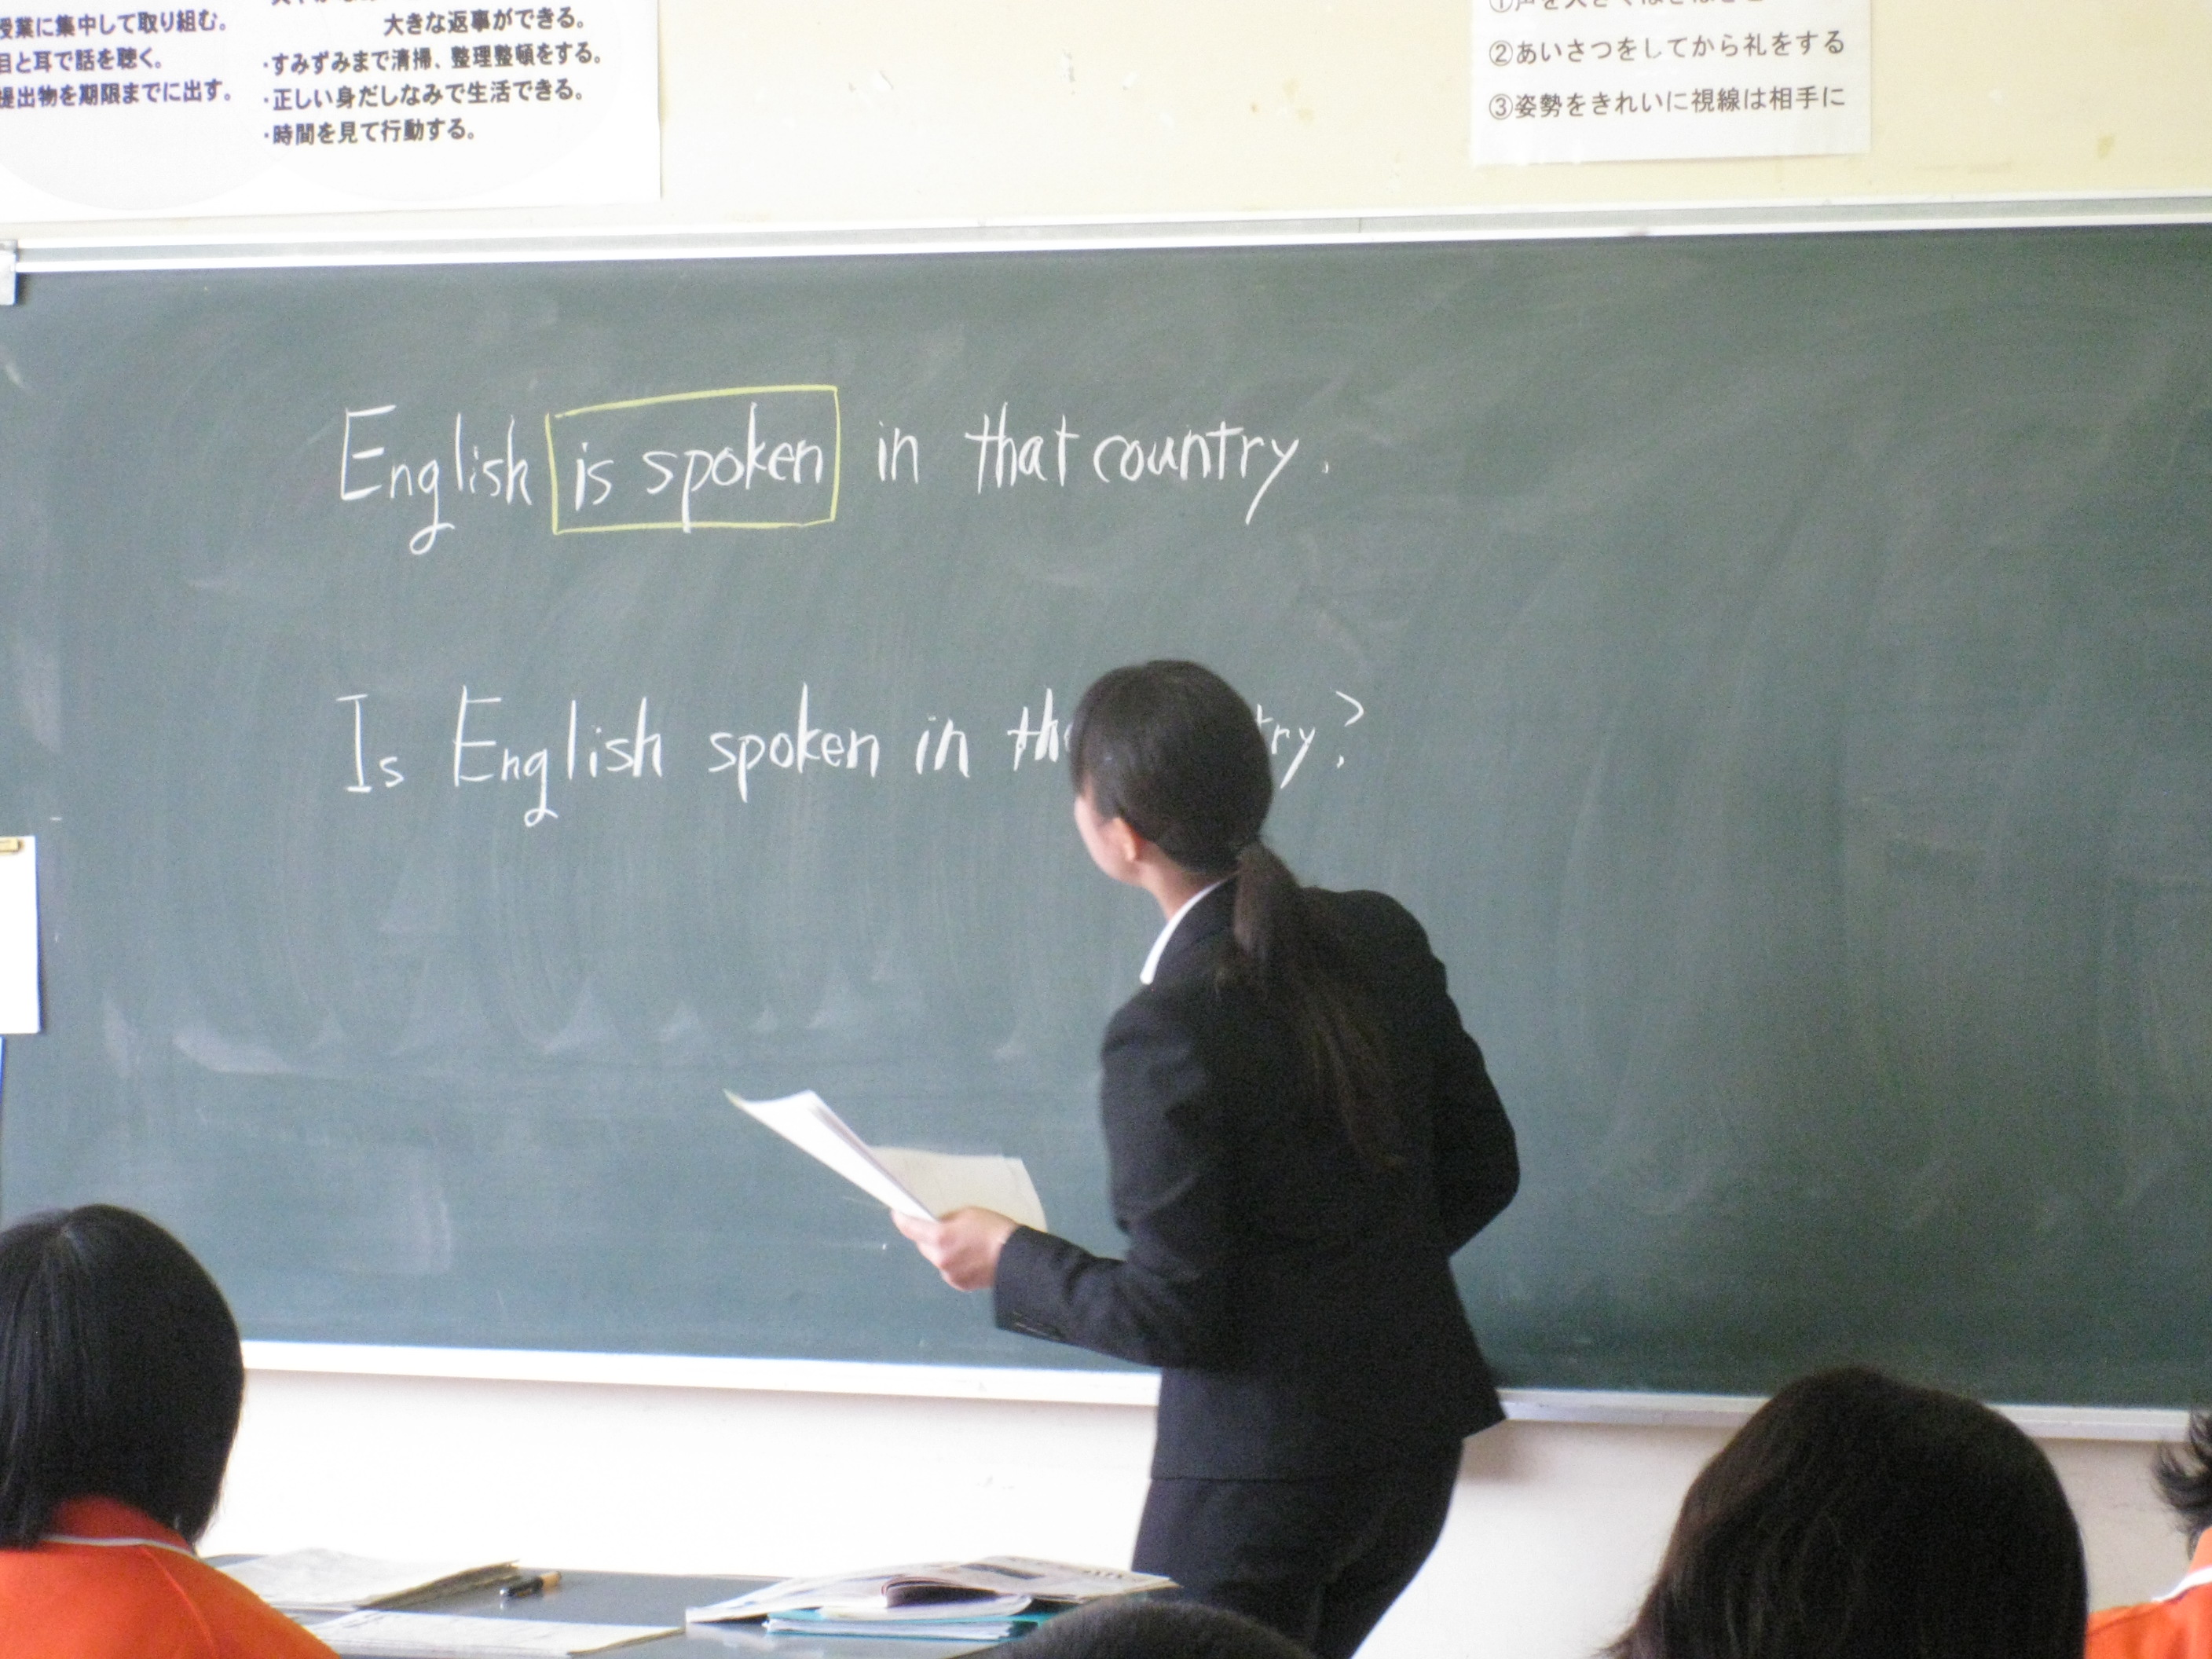 授業に集中して取り組む。
目と耳で話を聴く。
提出物を期限までに出す。
大きな返事ができる。
・すみずみまで清掃、整理整頓をする。
・正しい身だしなみで生活できる。
・時間を見て行動する。
②あいさつをしてから礼をする
③姿勢をきれいに視線は相手に
English is spoken in that country.
Is English spoken in